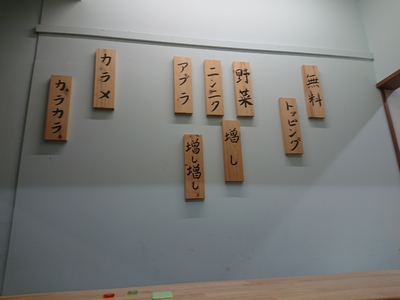 無料
トッピング
野菜
増し
ニンニク
増し増し。
アブラ
カラメ
カラカラ。